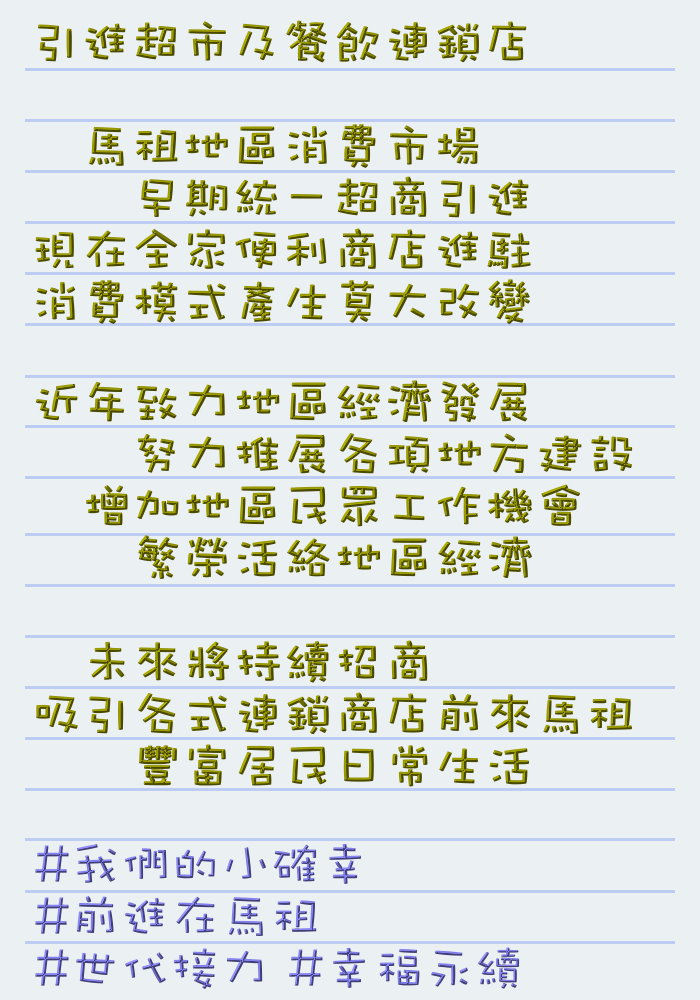 引進超市及餐飲連鎖店
馬祖地區消費市場
早期統一超商引進
現在全家便利商店進駐
消費模式產生莫大改變
近年致力地區經濟發展
努力推展各項地方建設
增加地區民眾工作機會
繁榮活絡地區經濟
未來將持續招商
吸引各式連鎖商店前來馬祖
豐富居民日常生活
#我們的小確幸
#前進在馬祖
#世代接力 #幸福永續